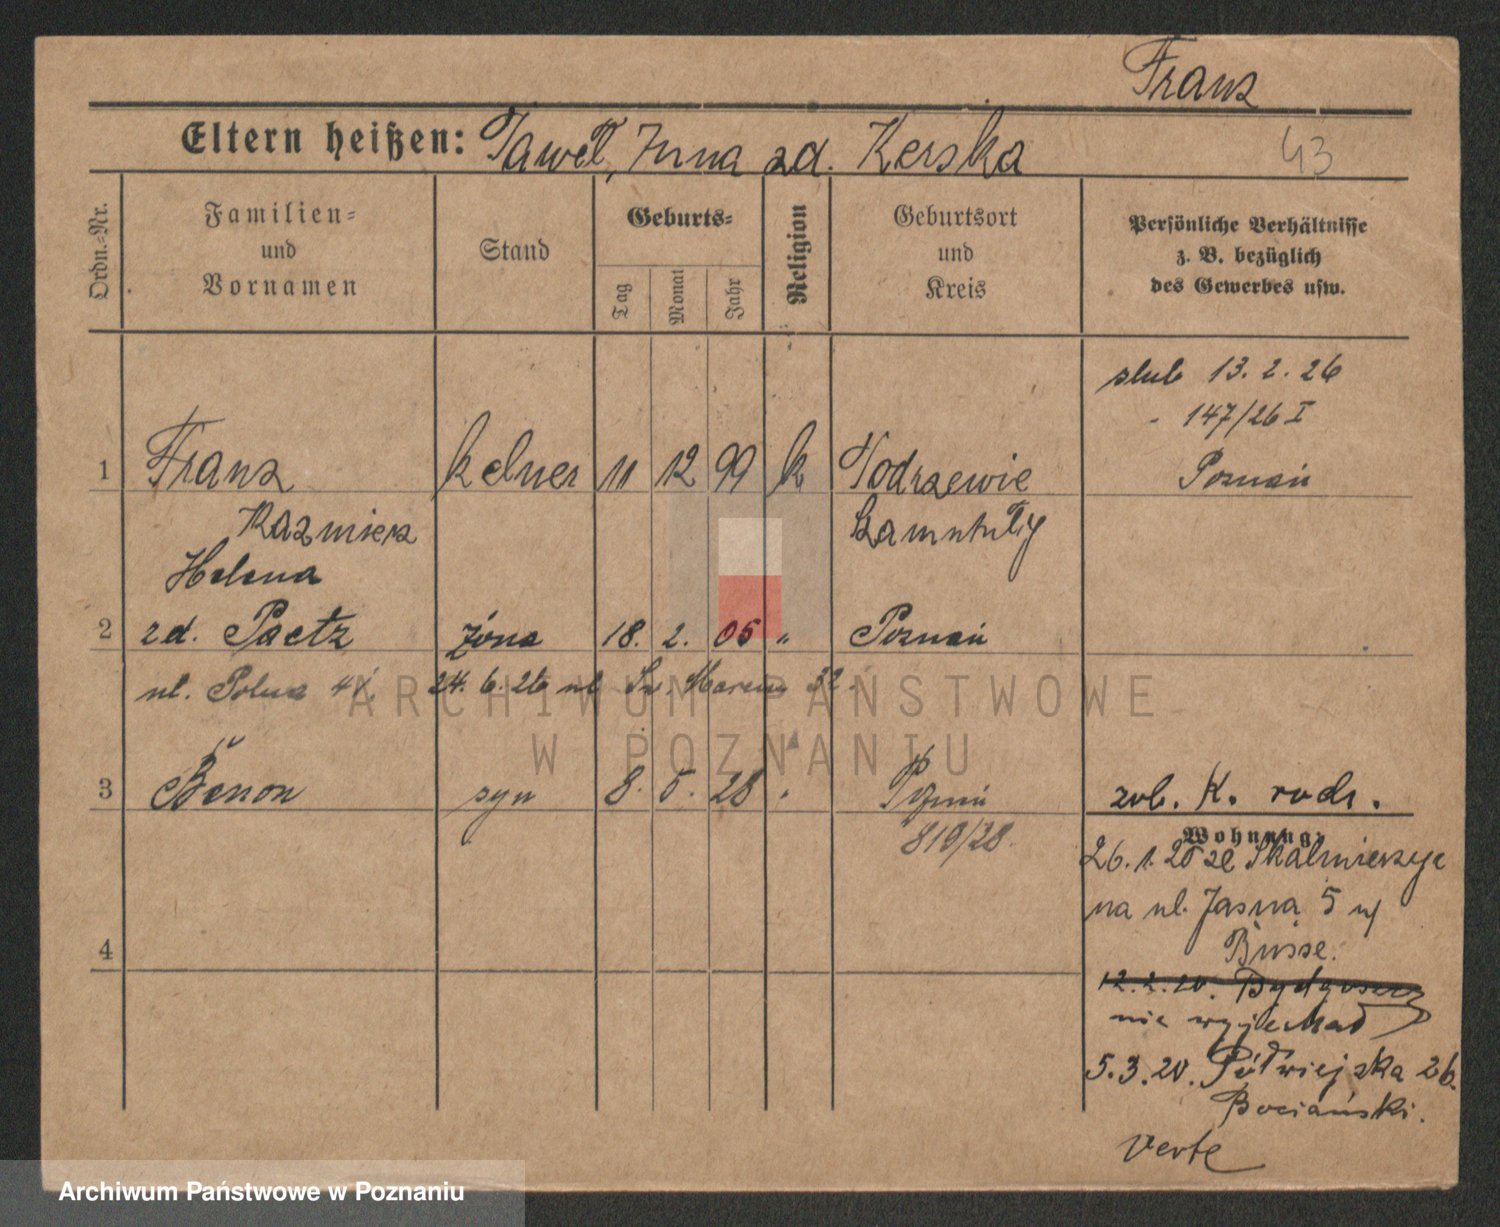 Franz
Eltern heißen: Paweł, Anna zd. Kerska
43
Ordn.-Nr.
Familien-
und
Vornamen
Stand
Geburts-
Tag
Monat
Jahr
Religion
Geburtsort
und
Kreis
Persönliche Verhältnisse
z. B. bezüglich
des Gewerbes usw.
slub 13. 2. 26
147/26 I
Poznań
1 Franz kelner 11 12 99 k Podrzewie
Kazmierz Szamotuły
Helena
2 zd. Paetz żona 18. 2. 05 " Poznań
ul. Polna 24. 6. 26 ul. Św. Marcin 32
3 Benon syn 8. 5. 28 Poznań
819/28.
zob. K. rodz.
Wohnung:
26. 1. 20 ze Skalmierzyc
na ul. Jasna 5 u/
Busse.
12. 2. 20. Bydgoszcz
nie wyjechał
5. 3. 20. Półwiejska 26.
Bociański.
Verte
4
ARCHIWUM PAŃSTWOWE
W POZNANIU
Archiwum Państwowe w Poznaniu